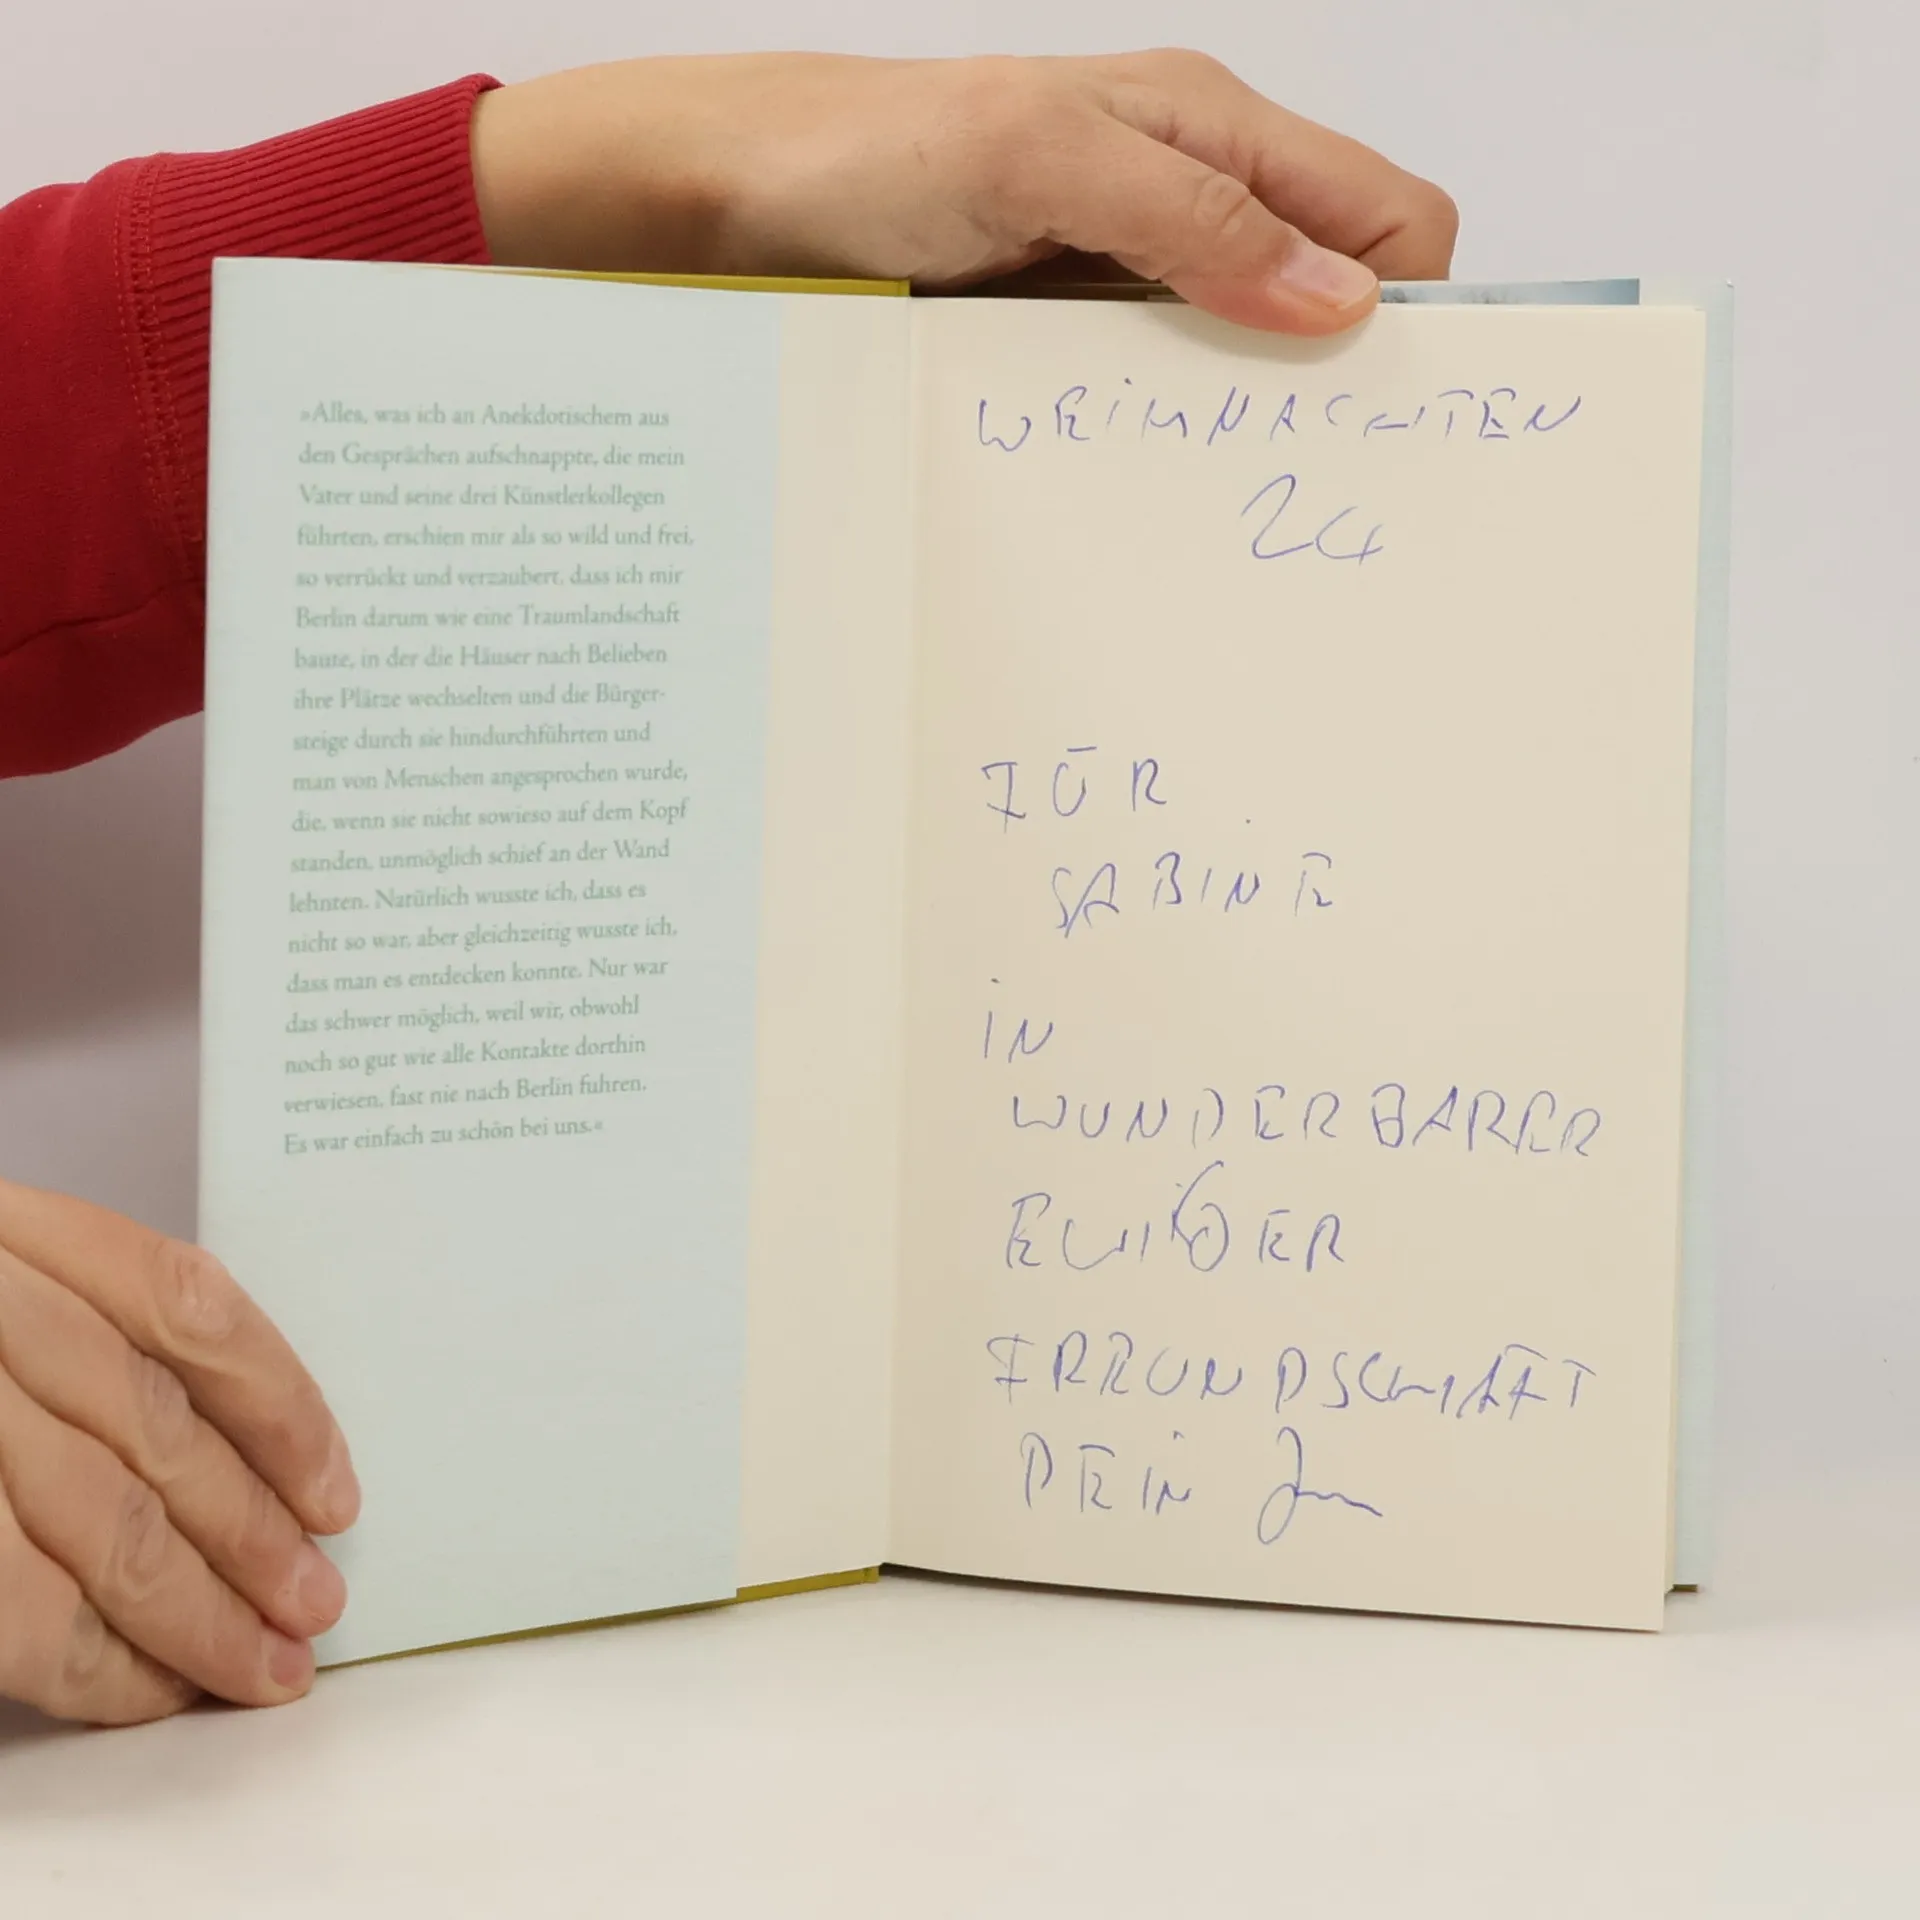 »Alles, was ich an Anekdotischem aus
den Gesprächen aufschnappte, die mein
Vater und seine drei Künstlerkollegen
führten, erschien mir als so wild und frei,
so verrückt und verzaubert, dass ich mir
Berlin darum wie eine Traumlandschaft
baute, in der die Häuser nach Belieben
ihre Plätze wechselten und die Bürger-
steige durch sie hindurchführten und
man von Menschen angesprochen wurde,
die, wenn sie nicht sowieso auf dem Kopf
standen, unmöglich schief an der Wand
lehnten. Natürlich wusste ich, dass es
nicht so war, aber gleichzeitig wusste ich,
dass man es entdecken konnte. Nur war
das schwer möglich, weil wir, obwohl
noch so gut wie alle Kontakte dorthin
verwiesen, fast nie nach Berlin fuhren.
Es war einfach zu schön bei uns.«
WEIHNACHTEN
24
FÜR
SABINE
IN
WUNDERBARER
EWIGER
FREUNDSCHAFT
DEIN